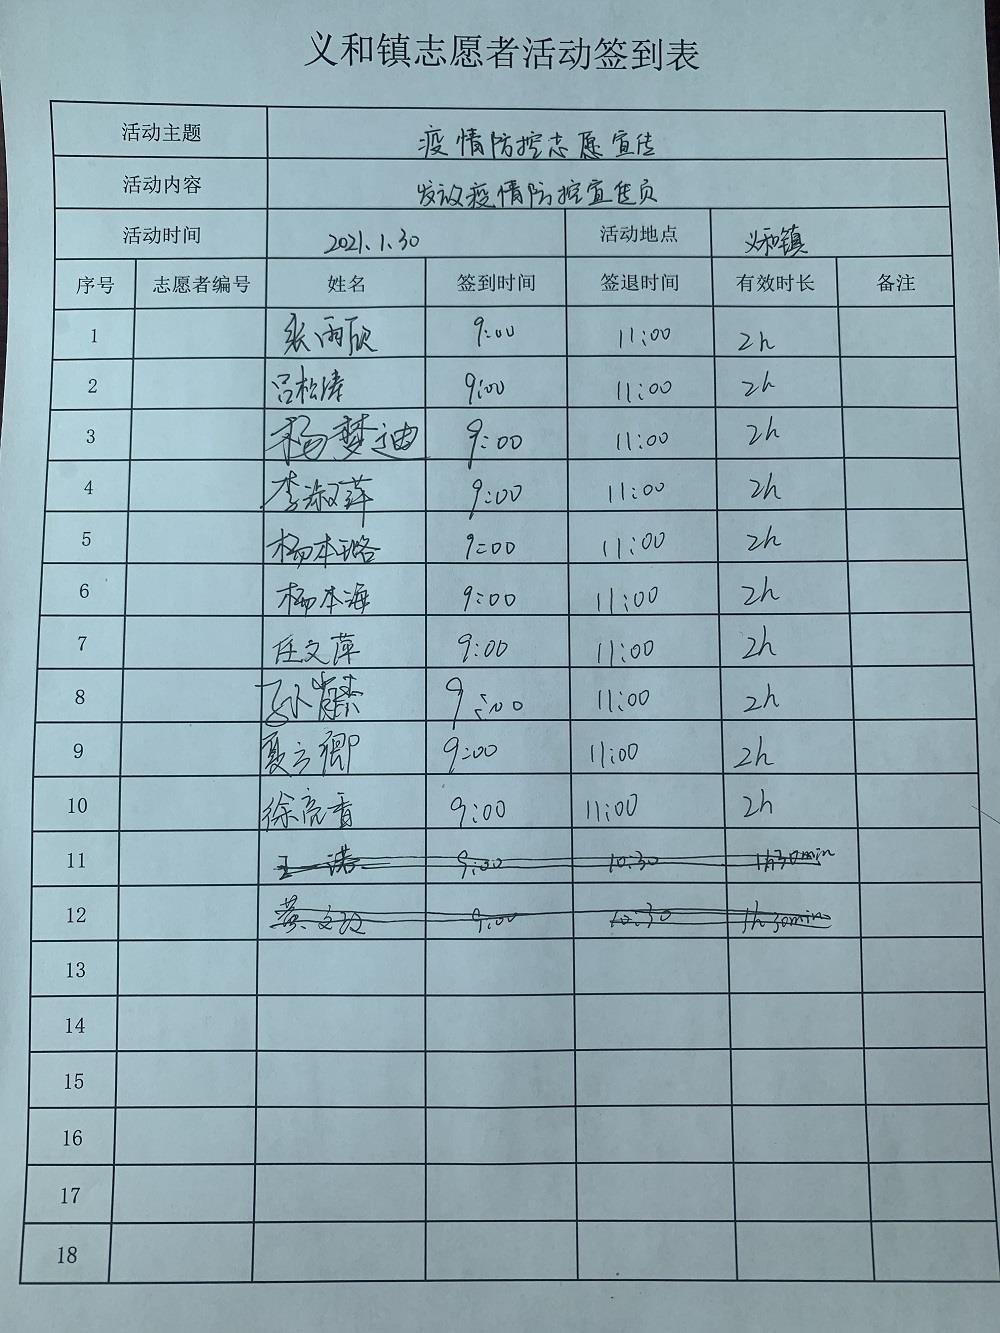 义和镇志愿者活动签到表
活动主题 疫情防控志愿宣传
活动内容 发放疫情防控宣传页
活动时间 2021.1.30 活动地点 义和镇
序号 志愿者编号 姓名 签到时间 签退时间 有效时长 备注
1 张雨欣 9:00 11:00 2h
2 吕松涛 9:00 11:00 2h
3 杨梦迪 9:00 11:00 2h
4 李淑萍 9:00 11:00 2h
5 杨本璐 9:00 11:00 2h
6 杨本海 9:00 11:00 2h
7 任文萍 9:00 11:00 2h
8 孙 9:00 11:00 2h
9 夏立卿 9:00 11:00 2h
10 徐亮香 9:00 11:00 2h
11 王诺 9:00 10:30 1h30min
12 9:00 10:30 1h30min
13
14
15
16
17
18